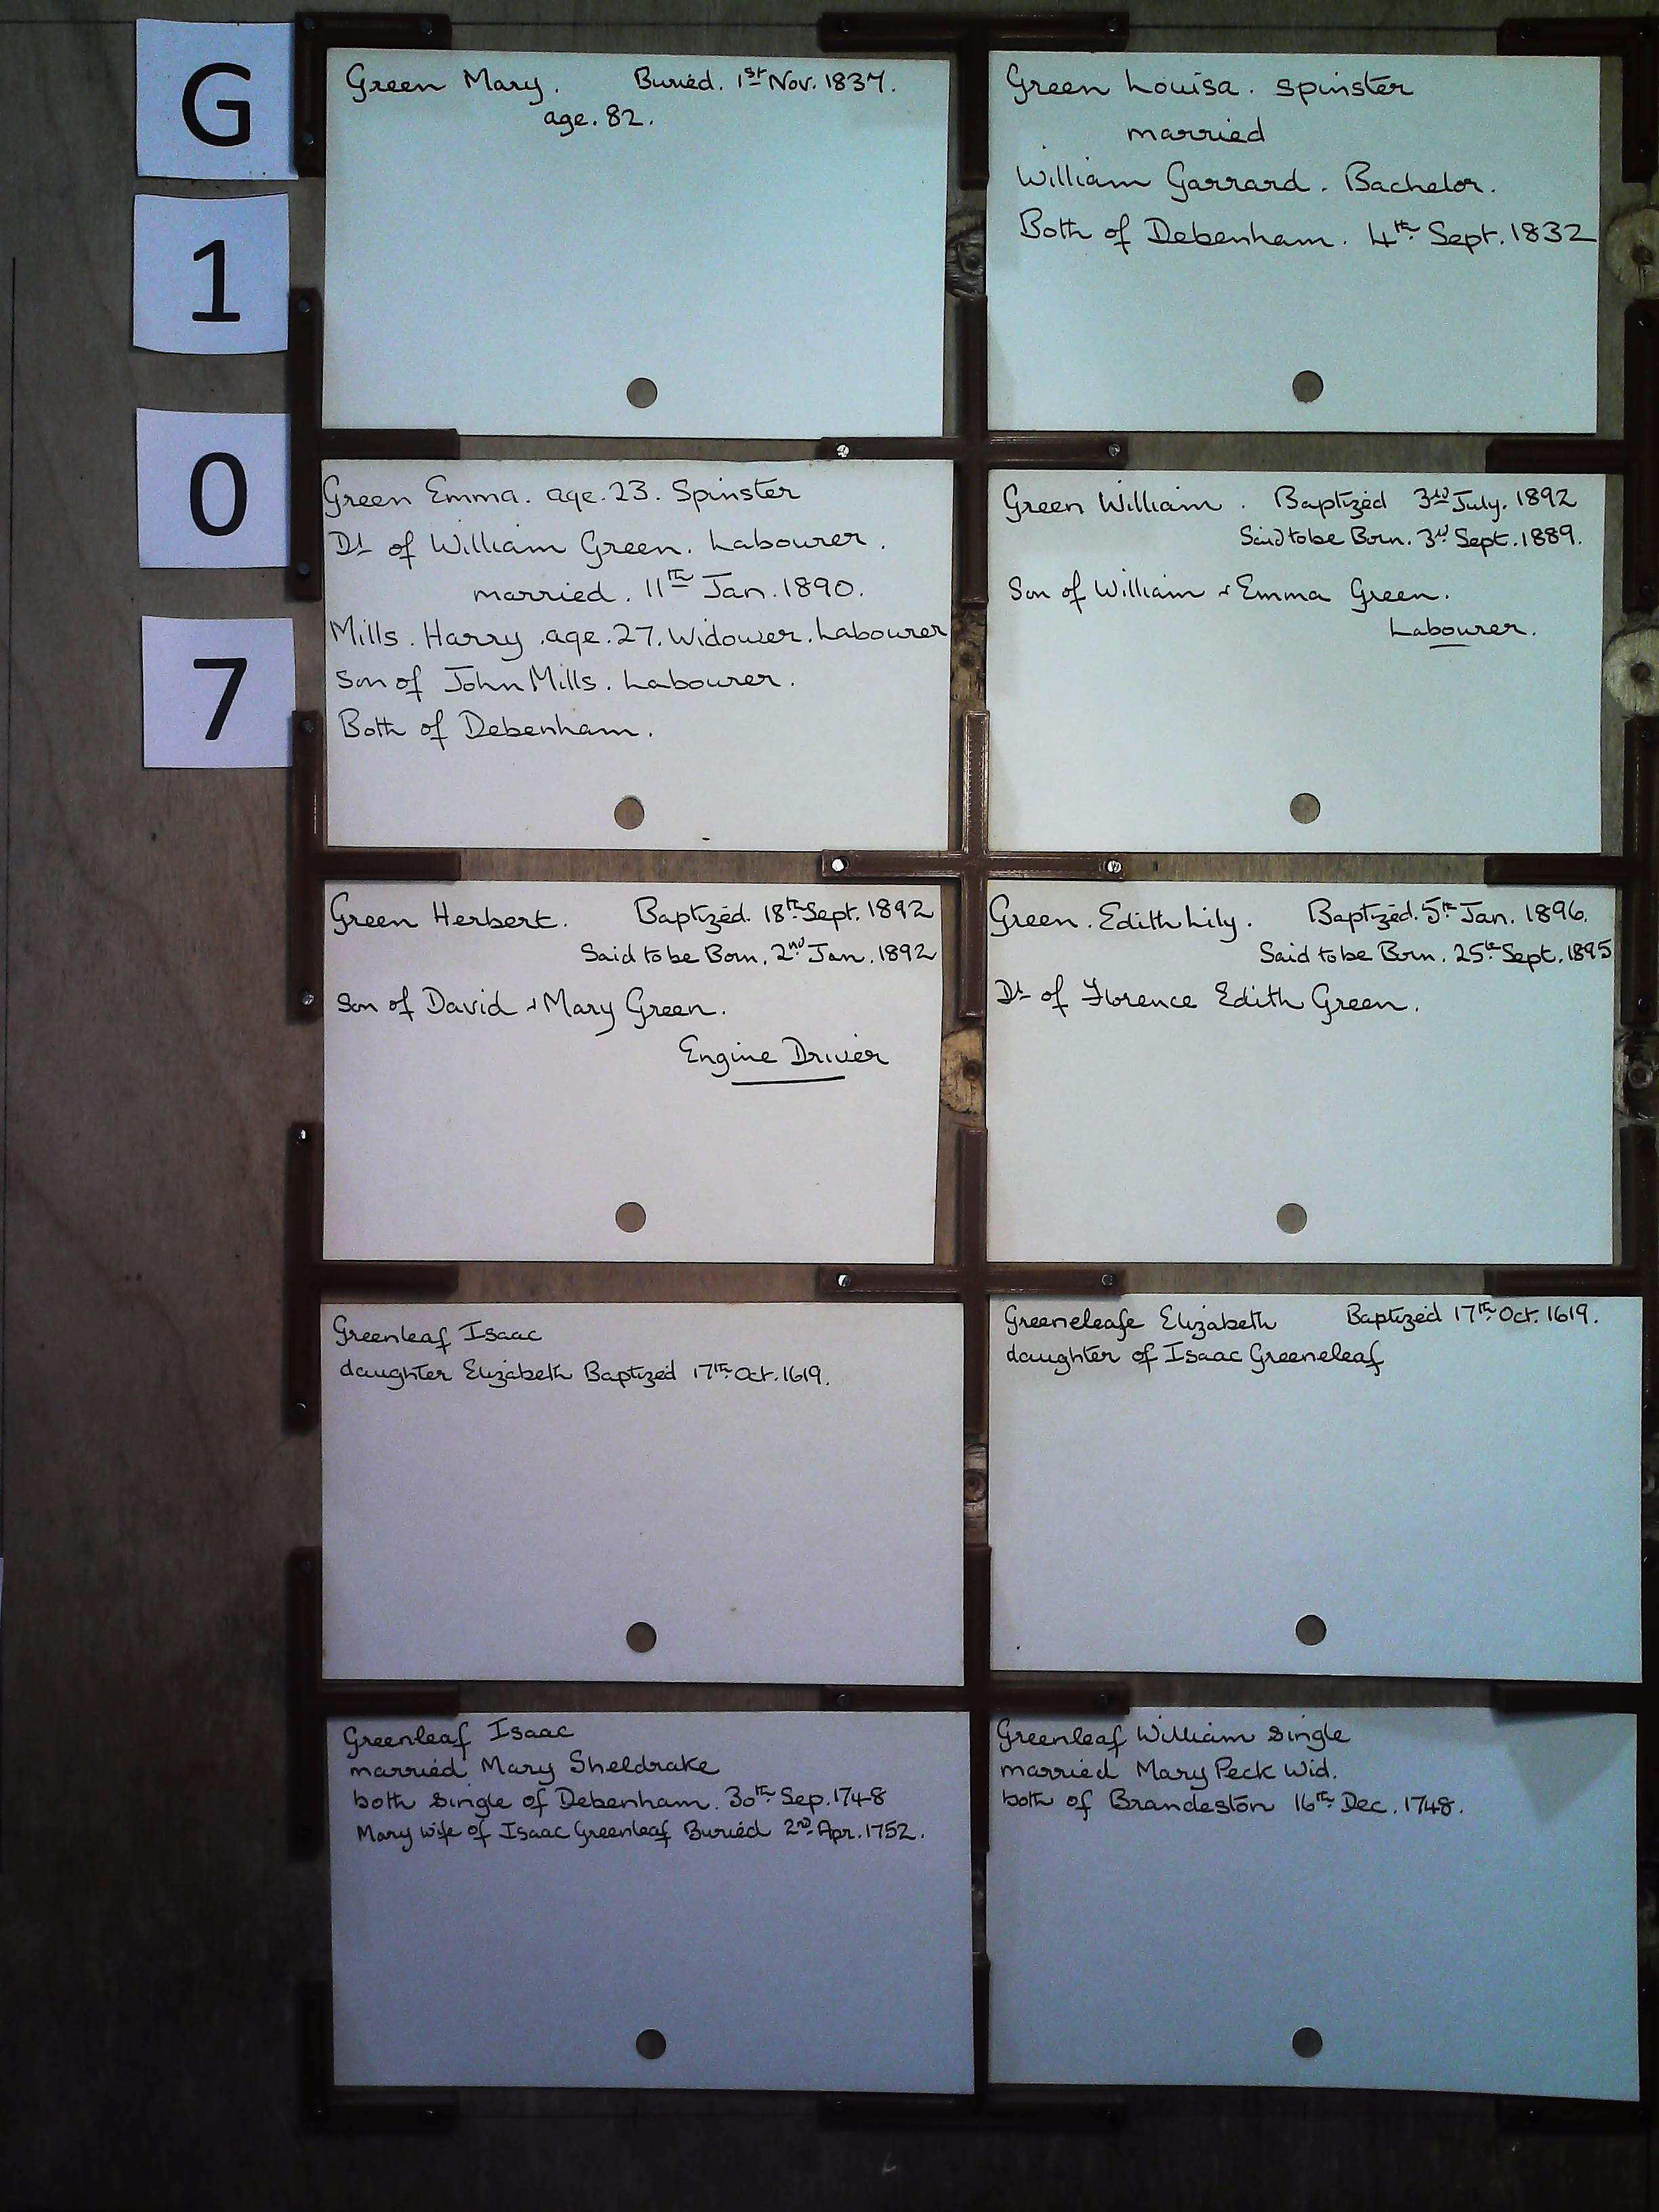 G
1
0
7
Green Mary. Buried. 1st Nov. 1837.
age. 82.
Green Louisa. Spinster
married
William Garrard. Bachelor.
Both of Debenham. 4th Sept. 1832
Green Emma. age. 23. Spinster
Dt of William Green. Labourer.
married. 11th Jan. 1890.
Mills. Harry. age. 27. Widower. Labourer
Son of John Mills. Labourer.
Both of Debenham.
Green William. Baptized 3rd July. 1892
Said to be Born. 3rd Sept. 1889.
Son of William & Emma Green.
Labourer.
Green Herbert. Baptized. 18th Sept. 1892
Said to be Born. 2nd Jan. 1892
Son of David & Mary Green.
Engine Driver
Green. Edith Lily. Baptized. 5th Jan. 1896.
Said to be Born. 25th Sept. 1895
Dt of Florence Edith Green.
Greenleaf Isaac
daughter Elizabeth Baptized 17th Oct. 1619.
Greeneleafe Elizabeth Baptized 17th Oct. 1619.
daughter of Isaac Greeneleaf
Greenleaf Isaac
married Mary Sheldrake
both single of Debenham. 30th Sep. 1748
Mary wife of Isaac Greenleaf Buried 2nd Apr. 1752.
Greenleaf William single
married Mary Peck Wid.
both of Brandeston 16th Dec. 1748.